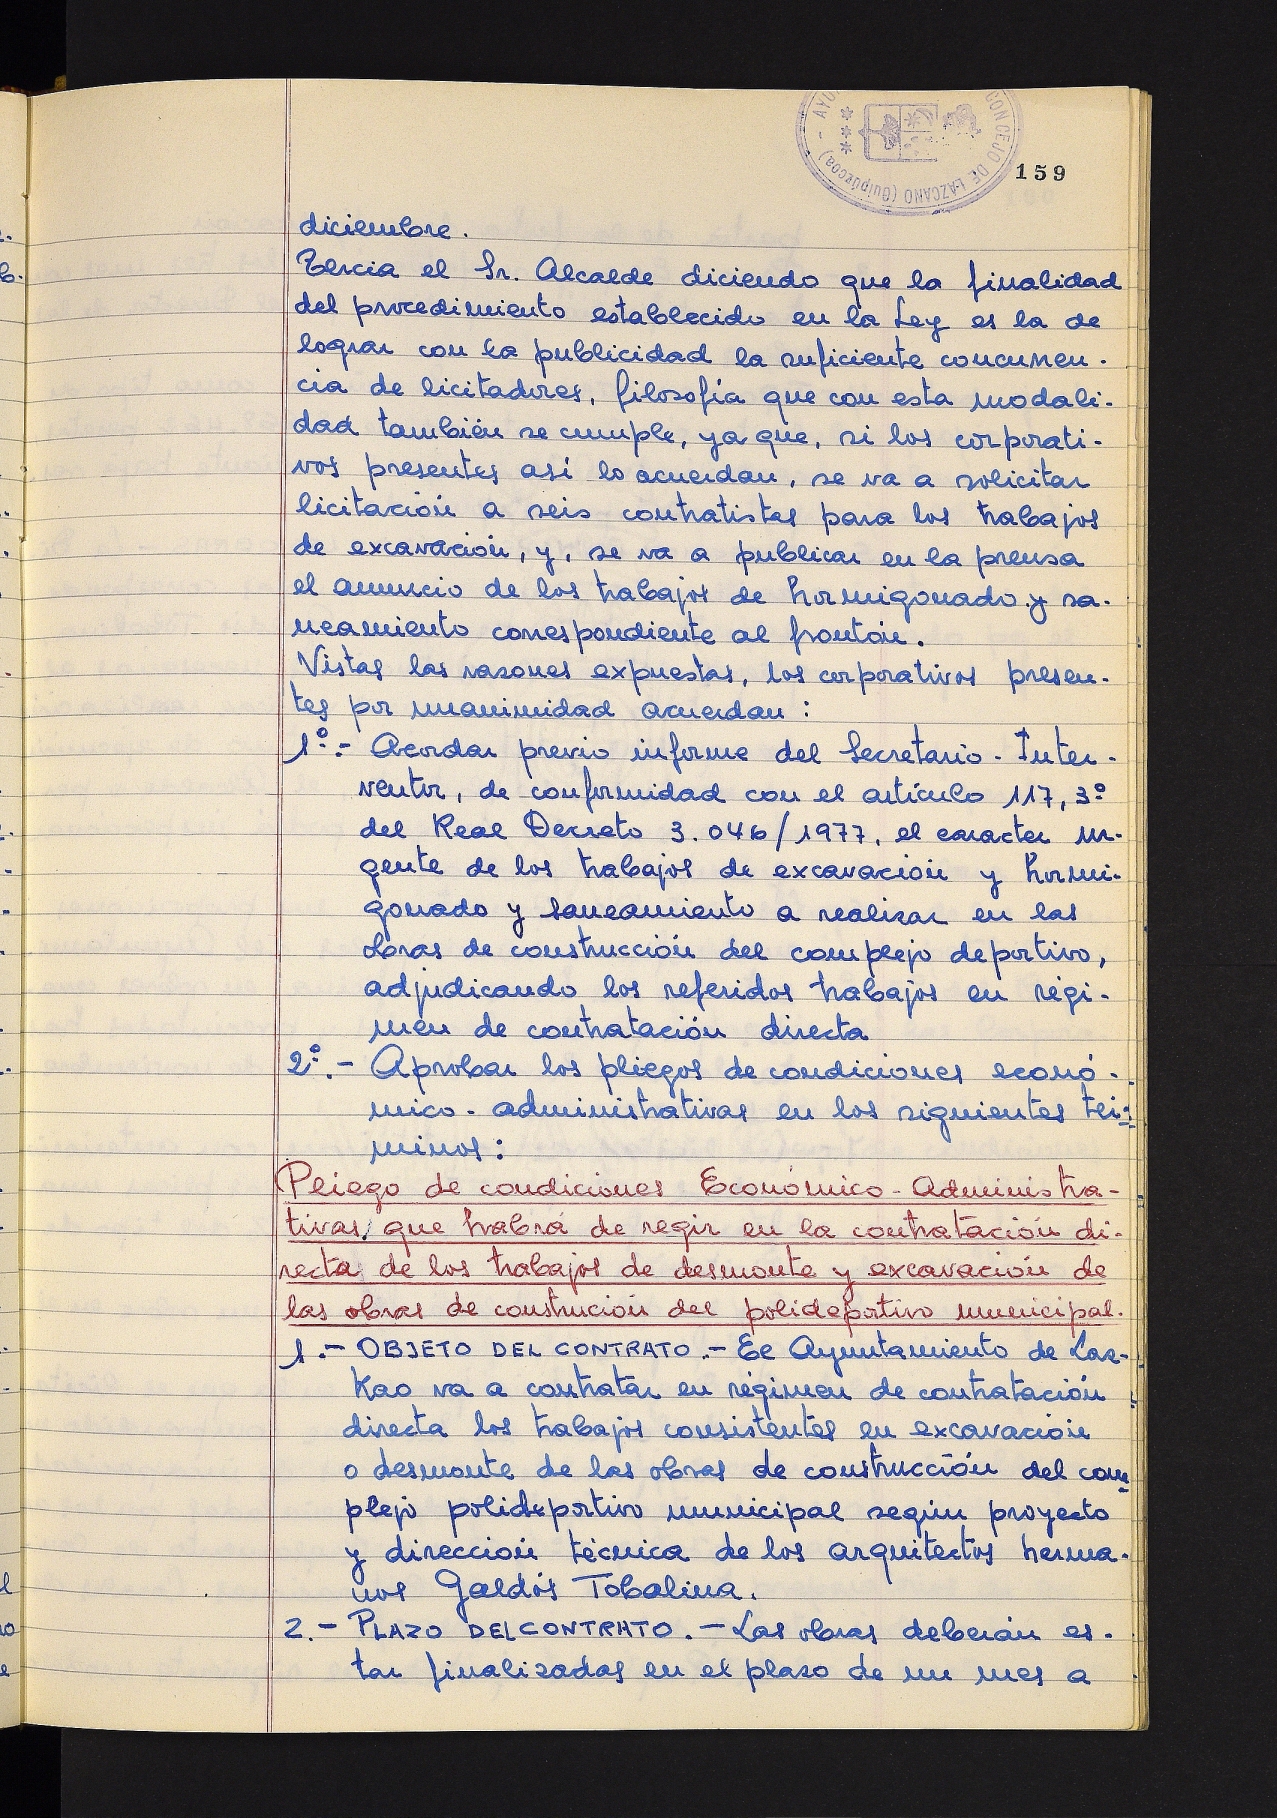 AYU
CONCEJO DE LAZCANO (Guipúzcoa)
159
diciembre.
Tercia el Sr. Alcalde diciendo que la finalidad
del procedimiento establecido en la Ley es la de
lograr con la publicidad la suficiente concurren-
cia de licitadores, filosofía que con esta modali-
dad también se cumple, ya que, si los corporati-
vos presentes así lo acuerdan, se va a solicitar
licitación a seis contratistas para los trabajos
de excavación, y, se va a publicar en la prensa
el anuncio de los trabajos de hormigonado y sa-
neamiento correspondiente al frontón.
Vistas las razones expuestas, los corporativos presen-
tes por unanimidad acuerdan:
1º.- Acordar previo informe del Secretario-Inter-
ventor, de conformidad con el artículo 117, 3º
del Real Decreto 3.046/1977, el caracter ur-
gente de los trabajos de excavación y hormi-
gonado y saneamiento a realizar en las
obras de construcción del complejo deportivo,
adjudicando los referidos trabajos en régi-
men de contratación directa
2º.- Aprobar los pliegos de condiciones econó-
mico-administrativas en los siguientes tér-
minos:
Pliego de condiciones Económico-Administra-
tivas, que habrá de regir en la contratación di-
recta de los trabajos de desmonte y excavación de
las obras de construcion del polideportivo municipal.
1.- OBJETO DEL CONTRATO.- El Ayuntamiento de Laz-
kao va a contratar en régimen de contratación
directa los trabajos consistentes en excavación
o desmonte de las obras de construcción del com-
plejo polideportivo municipal según proyecto
y dirección técnica de los arquitectos herma-
nos Galdós Tobalina.
2.- PLAZO DEL CONTRATO.- Las obras deberán es-
tar finalizadas en el plazo de un mes a